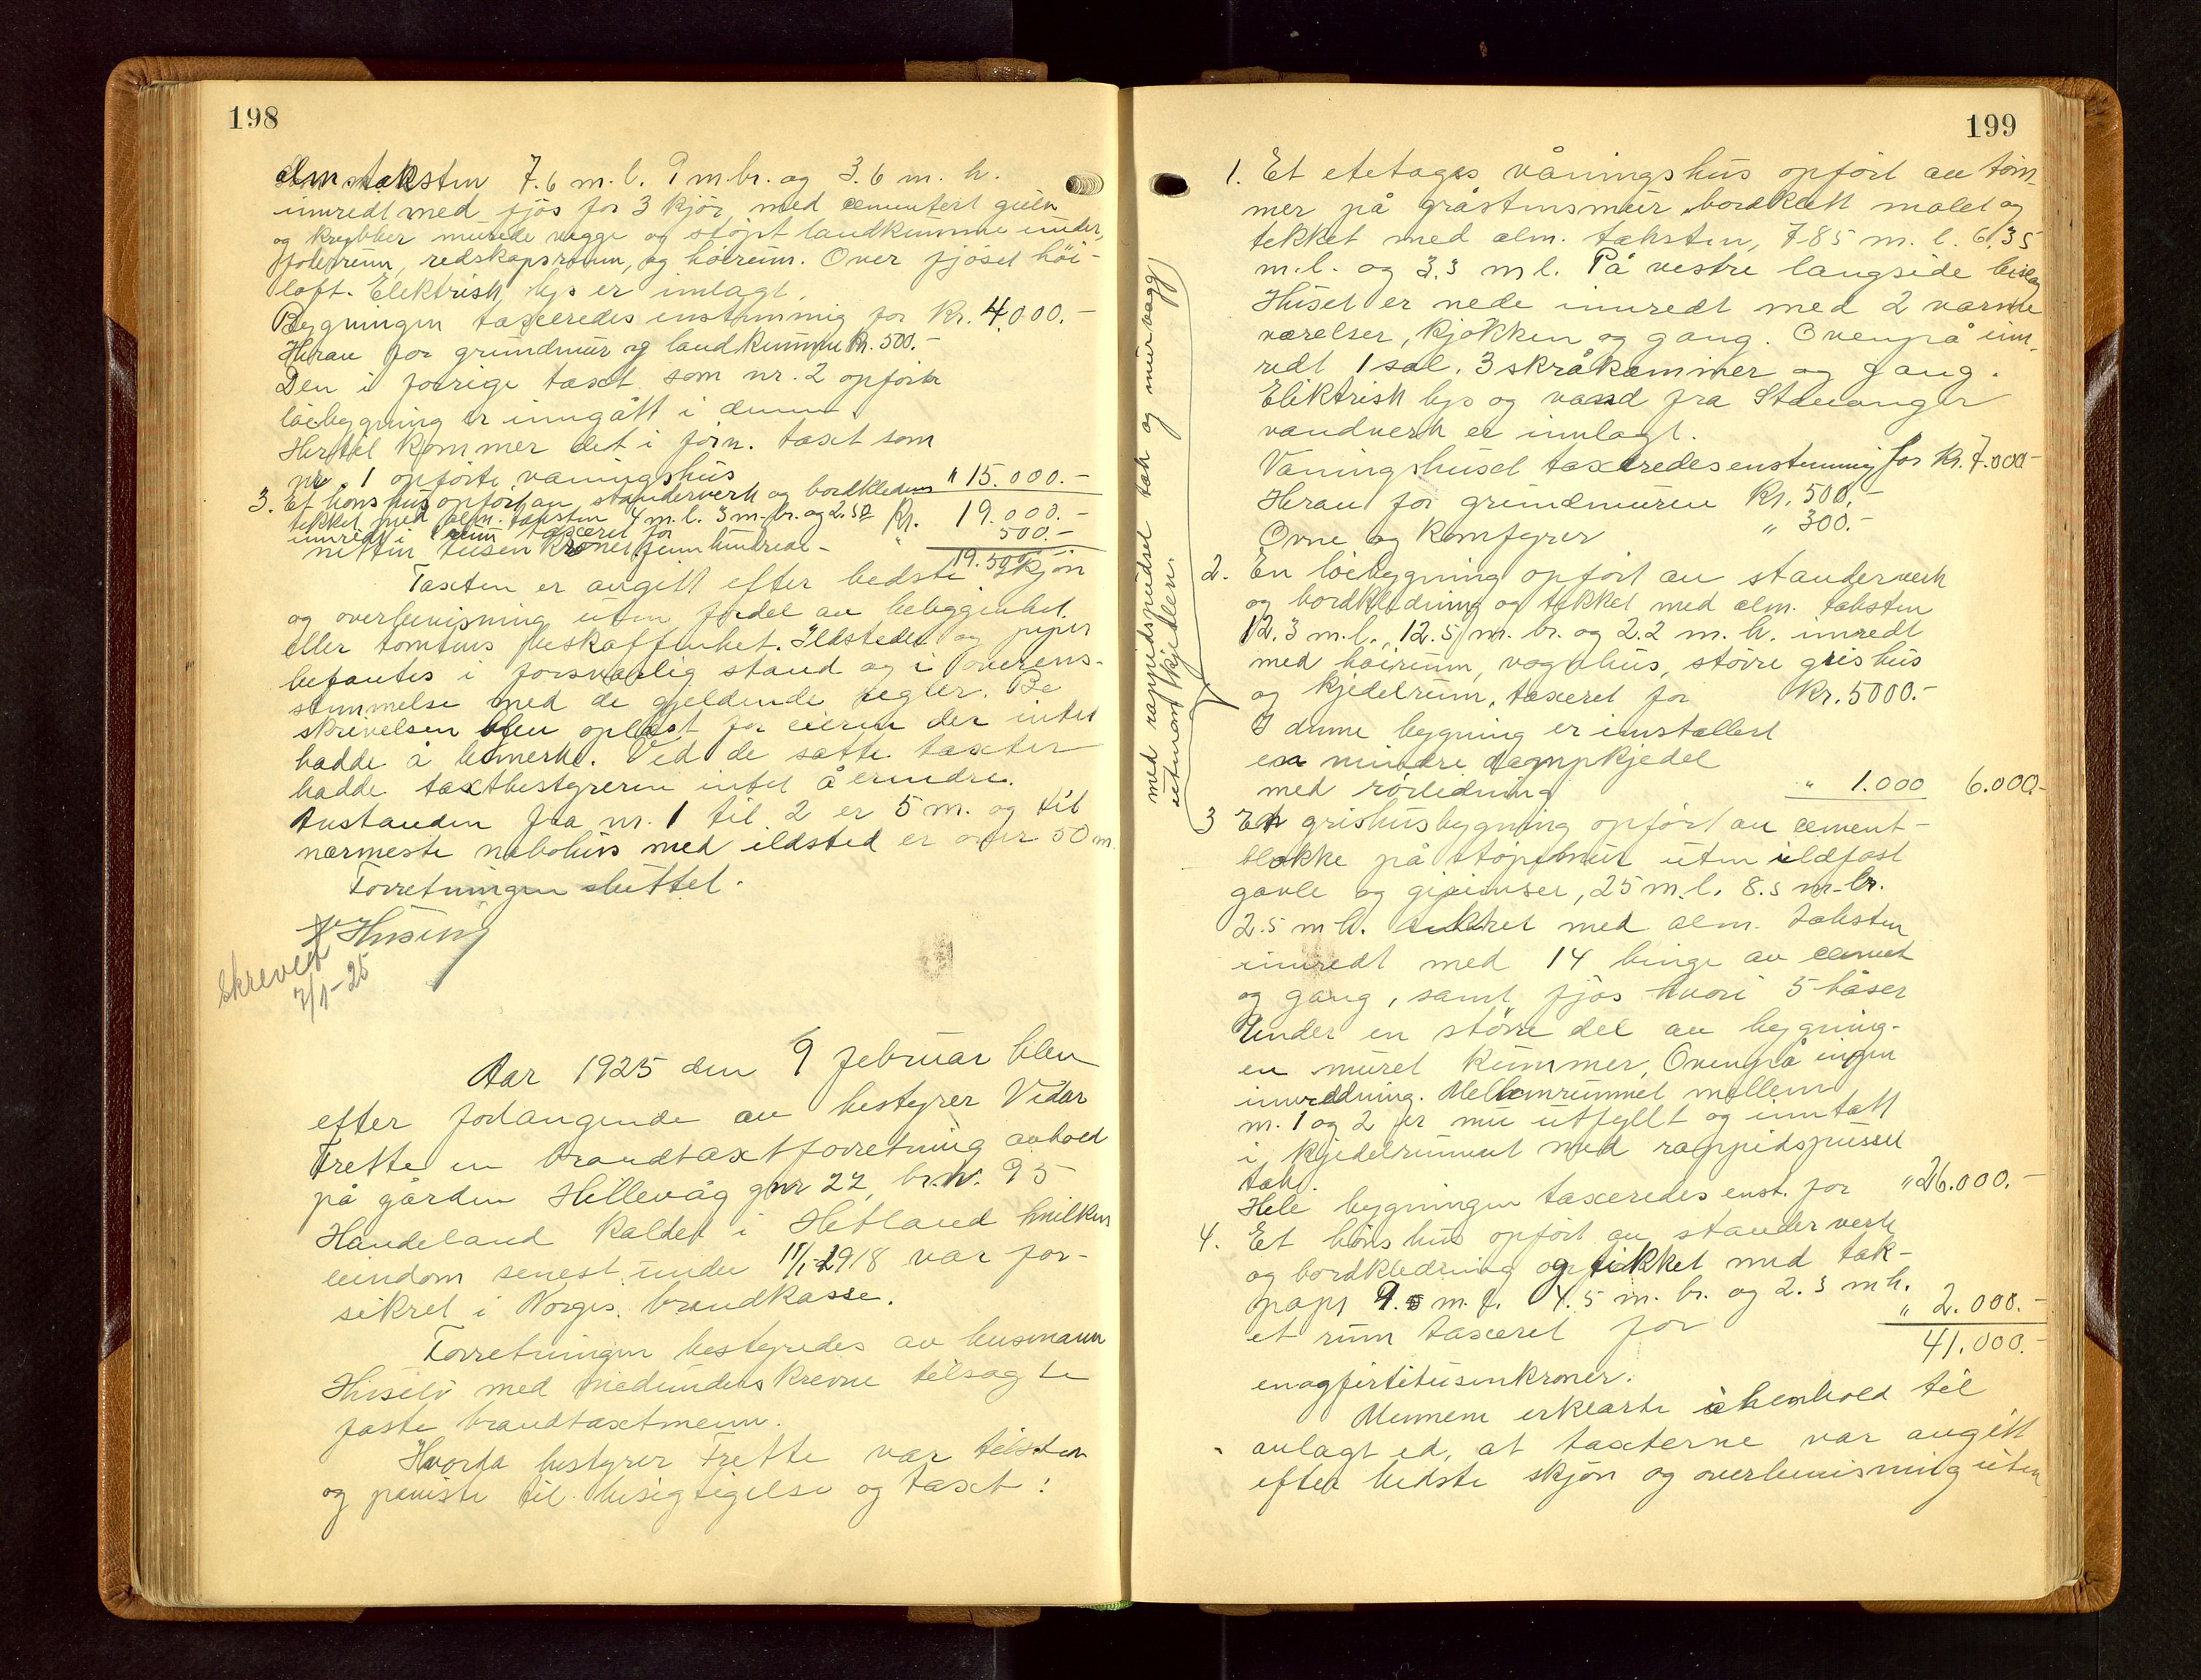 198
alm. taksten 7.6 m. l. 9 m. br. og 3.6 m. h.
innredt med fjøs for 3 kjør, med cementert gulv
og krybber murede vegge og støpt landkumme under,
foderrum, redskapsrum, og høirum. Over fjøset høi-
loft. Elektrisk lys er innlagt.
Bygningen taxeredes enstemmig for Kr. 4.000.-
Herav for grundmur og landkumme kr. 500.-
Den i forrige taxt som nr. 2 opførte
løebygning er inngått i denne.
Hertil kommer det i forn. taxt som
nr. 1 opførte våningshus " 15.000.-
3. Et hønshus opført av standerverk og bordkledning
tekket med alm. taksten 4 m. l. 3 m. br. og 2.50 Kr. 19.000.-
innredt i 1 rum taxeret for " 500.-
nitten tusen kroner femhundrede - 19.500
Taxten er avgitt efter bedste skjøn
og overbevisning uten fordel av beliggenhet
eller tomtens beskaffenhet. Ildsteder og piper
befantes i forsvarlig stand og i overens-
stemmelse med de gjeldende regler. Be
skrivelsen blev oplæst for eieren der intet
hadde å bemerke. Ved de satte taxter
hadde taxtbestyreren intet å erindre.
Avstanden fra nr. 1 til 2 er 5 m. og til
nærmeste nabohus med ildsted er over 50 m.
Forretningen sluttet.
Husing
Skrevet
7/1-25
Aar 1925 den 9 februar blev
efter forlangende av bestyrer Vidar
Frette en brandtaxtforretning avhold
på gården Hillevåg gnr 22, br.nr. 95
Handeland kaldet i Hetland hvilken
eiendom senest under 11/1-1918 var for-
sikret i Norges brandkasse.
Forretningen bestyredes av husmann
Husebø med medunderskrevne tilsagte
faste brandtaxtmenn.
Hvorfa bestyrer Frette var tilstede
og påviste til besigtigelse og taxt:
199
1. Et etetages våningshus opført av tøm-
mer på gråstensmur, bordklett malet og
tekket med alm. taksten, 7.85 m. l. 6.35
m. l. og 3.3 m l. På vestre langside bislag
Huset er nede innredt med 2 varme
værelser, kjøkken og gang. Ovenpå inn-
redt 1 sal, 3 skråkammer og gang.
Elektrisk lys og vand fra Stavanger
vandverk er innlagt.
Våningshuset taxeredes enstemmig for Kr. 7.000-
Herav for grundmuren Kr. 500.-
Ovne og komfyrer " 300.-
2. En løebygning opført av standerverk
og bordkledning og tekket med alm. taksten
12.3 m. l., 12.5 m. br. og 2.2 m. h. inredt
med høirum, vognhus, større grishus
og kjedelrum, taxeret for Kr. 5000.-
I denne bygning er innstallert
en mindre dampkjedel
med rørledning " 1.000 6.000-
med rappidspudset tak og murvegg
utenom kjedlen.
3 En grishusbygning opført av cement-
blokke på støpt mur uten ildfast
gavle og gipinser, 25 m. l. 8.5 m. br.
2.5 m h. tekket med alm. taksten
innredt med 14 binge av cement
og gang, samt fjøs hvori 5 båser
Under en større del av bygning-
en muret kummer, Ovenpå ingen
innredning. Mellemrummet mellem
nr. 1 og 2 er nu utfyllt og inntatt
i kjedelrummet med rappidspusset
tak.
Hele bygningen taxeredes enst. for " 26.000.-
4. Et hønshus opført av standerverk
og bordkledning og tekket med tak-
papp 9.5 m. l. 4.5 m. br. og 2.3 m h.
et rum taxeret for " 2.000.-
41.000.-
enogførtitusenkroner.
Mennene erklærte i henhold til
avlagt ed, at taxterne var avgitt
efter bedste skjøn og overbevisning uten